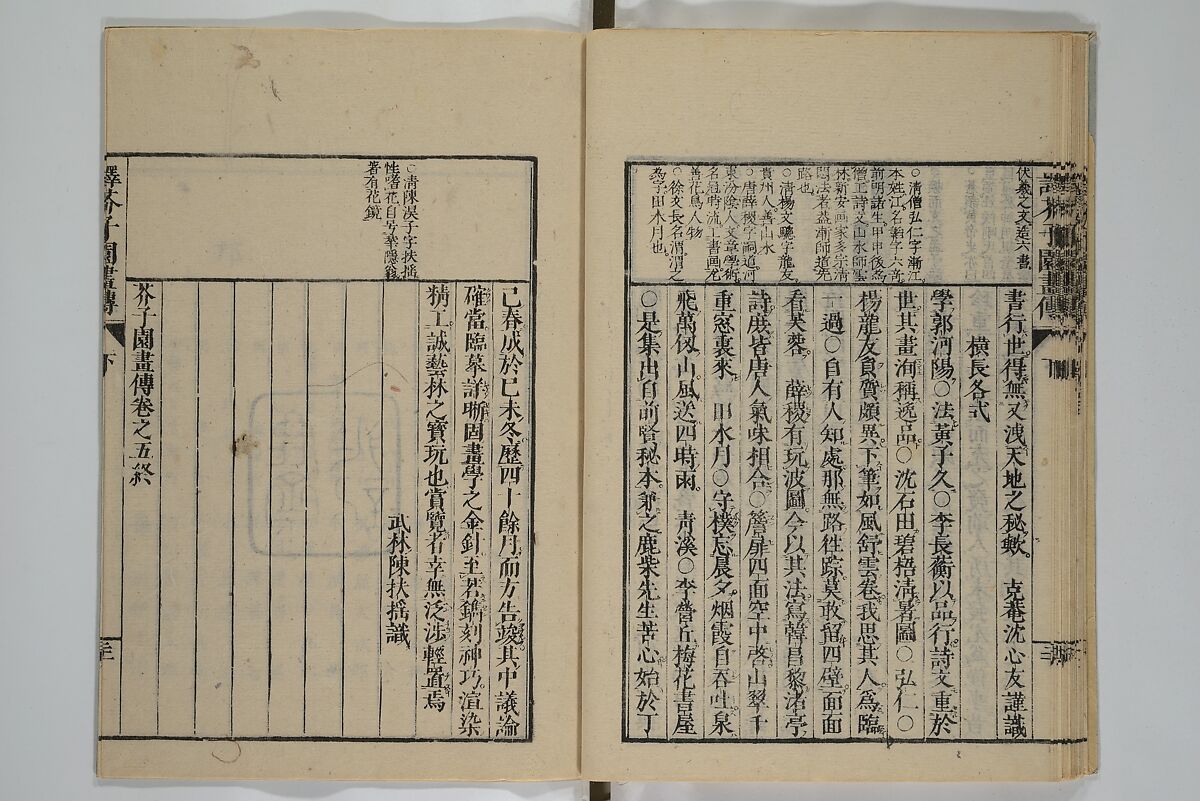 伏羲之文造六書
書行世得無又洩天地之秘歟。 克菴沈心友謹識
橫長各式
學郭河陽〇法黃子久〇李長蘅以品行詩文重於
世其畫洵稱逸品〇沈石田碧梧清暑圖〇弘仁〇
楊龍友負質頗異下筆如風舒雲卷我思其人為臨
一過〇自有人知處那無路徃踪莫敢留四壁面面
看芙蓉。 薛稷有玩波圖今以其法寫韓昌黎渚亭
詩展皆唐人氣味相合〇簷扉四面空中啓山翠千
重窓裏來 田水月〇守樸忘晨夕烟霞自吞吐泉
飛萬仭山風送四時雨 青溪〇李營丘梅花書屋
〇是集出自前賢秘本兼之鹿柴先生苦心始於丁
〇清僧弘仁字漸江
本姓江名韜字六奇
前明諸生甲申後為
僧工詩文山水師雲
林新安画家多宗清
閟法者益漸師道先
路也
〇清楊文驄字龍友
貴州人善山水
〇唐薛稷字嗣道河
東汾陰人文章學術
名冠時流工書画尤
善花鳥人物
〇徐文長名渭渭之
為字田水月也
〇清陳淏子字扶搖
性嗜花自号華隱翁
著有花鏡
己春成於己未冬歷四十餘月而方告竣其中議論
確當臨摹詳晰固畫學之金針至若鐫刻神巧渲染
精工誠藝林之寳玩也賞覽者幸無泛涉輕置焉
武林陳扶揺識
芥子園畫傳卷之五終
譯芥子園畫傳 下